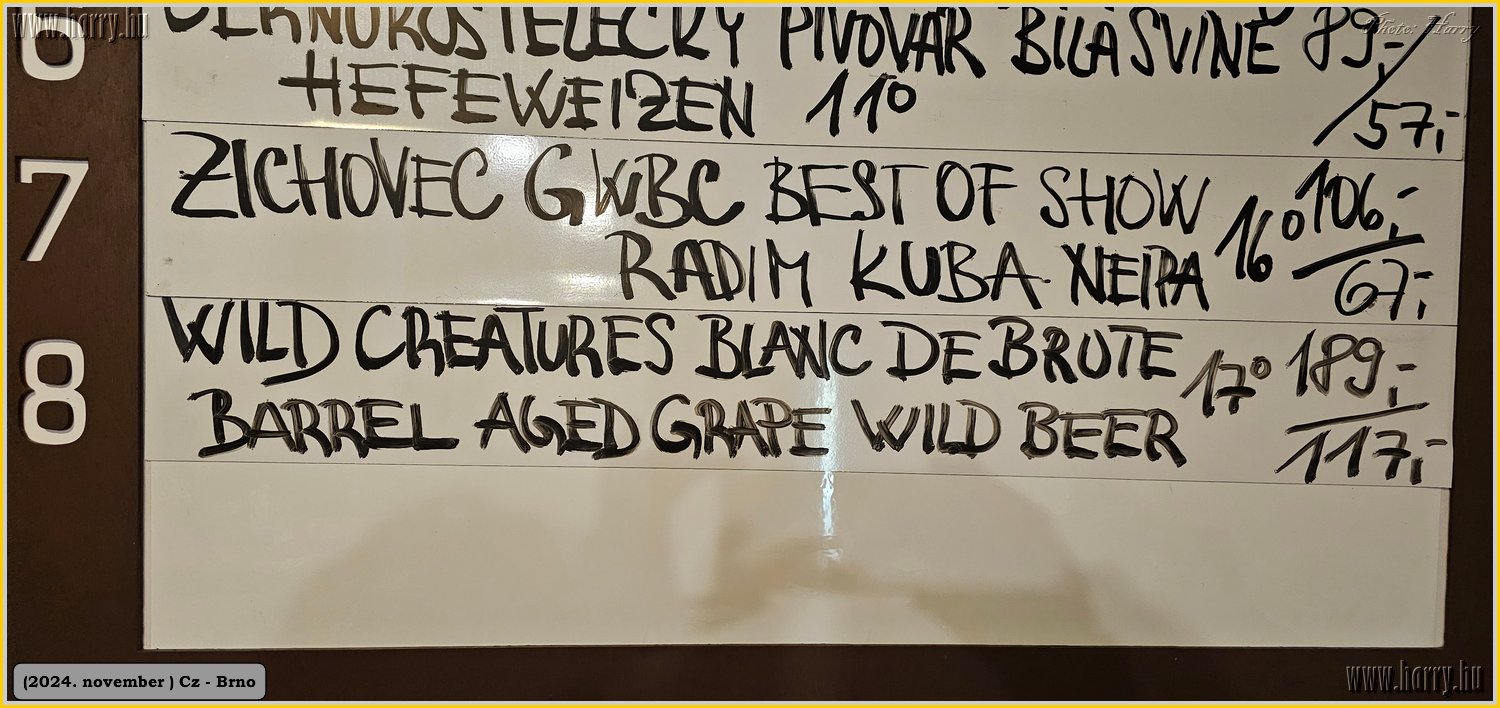 www.harry.hu
Photo: Harry
6 ČERNOKOSTELECKÝ PIVOVAR BÍLÁ SVINĚ 89,-
HEFEWEIZEN 11° 57,-
7 ZICHOVEC GWBC BEST OF SHOW 106,-
RADIM KUBA NEIPA 16° 67,-
8 WILD CREATURES BLANC DE BRUTE 189,-
BARREL AGED GRAPE WILD BEER 17° 117,-
(2024. november ) Cz - Brno
www.harry.hu